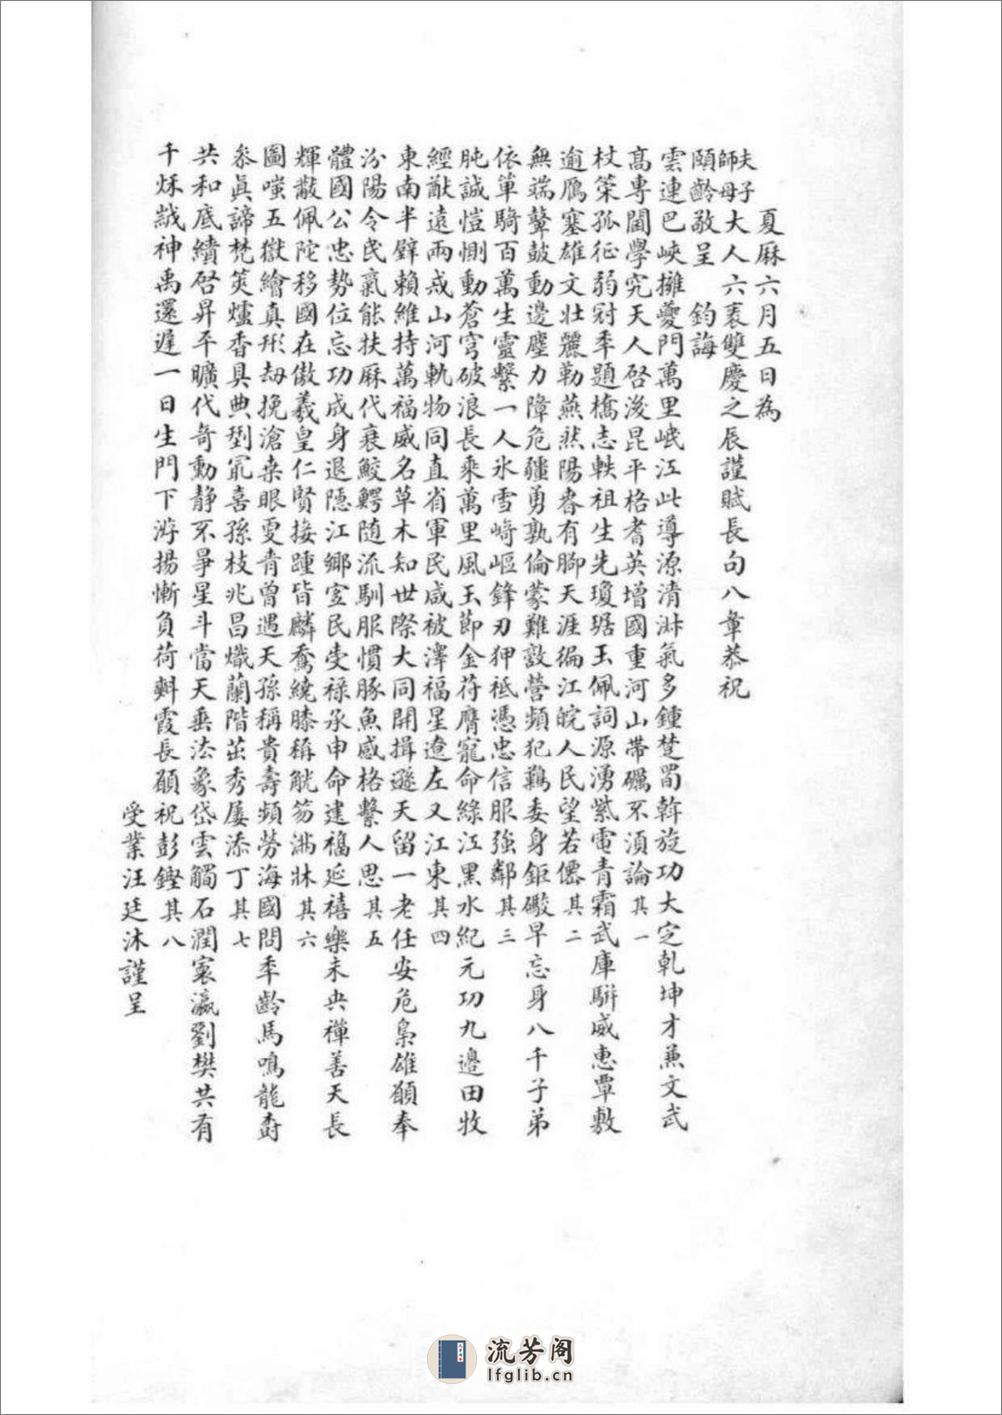 夏厤六月五日為
夫子師母大人六袠雙慶之辰謹賦長句八章恭祝
頤齡敬呈　鈞誨
雲連巴峽擁夔門萬里岷江此導源清淋氣多鍾楚蜀斡旋功大定乾坤才兼文武
高專閫學究天人啓浚昆平格耆英增國重河山帶礪不須論其一
杖策孤征弱冠季題橋志軼祖生先瓊琚玉佩詞源湧紫電青霜武庫駢威惠覃敷
逾鴈塞雄文壯麗勒燕然陽春有腳天涯徧江皖人民望若僊其二
無端鼙鼓動邊塵力障危疆勇孰倫蒙難敦營頻犯難委身鉅礮早忘身八千子弟
依單騎百萬生靈繫一人氷雪崎嶇鋒刃狎祗憑忠信服強鄰其三
肫誠愷惻動蒼穹破浪長乘萬里風玉節金符膺寵命綠江黑水紀元功九邊田牧
經猷遠兩戒山河軌物同直省軍民咸被澤福星遼左又江東其四
東南半壁賴維持萬福威名草木知世際大同開揖遜天留一老任安危梟雄願奉
汾陽令民氣能扶厤代衰鮫鰐隨流馴服慣豚魚感格繫人思其五
體國公忠勢位忘功成身退隱江鄉宜民受祿承申命建福延禧樂未央禪善天長
輝黻佩陀移國在傲羲皇仁賢接踵皆麟鳳繞膝稱觥笏滿牀其六
圖嗤五嶽繪真形劫挽滄桑眼雯青曾遇天孫稱貴壽頻勞海國問季齡馬鳴龍樹
叅眞諦梵筴爐香具典型窊喜孫枝兆昌熾蘭階茁秀屢添丁其七
共和底績啓昇平曠代奇勳靜不爭星斗當天垂法象岱雲觸石潤寰瀛劉樊共有
千秌懿神禹還遲一日生門下游揚慚負荷斟霞長願祝彭鏗其八
受業汪廷沐謹呈
流芳阁
lfglib.cn